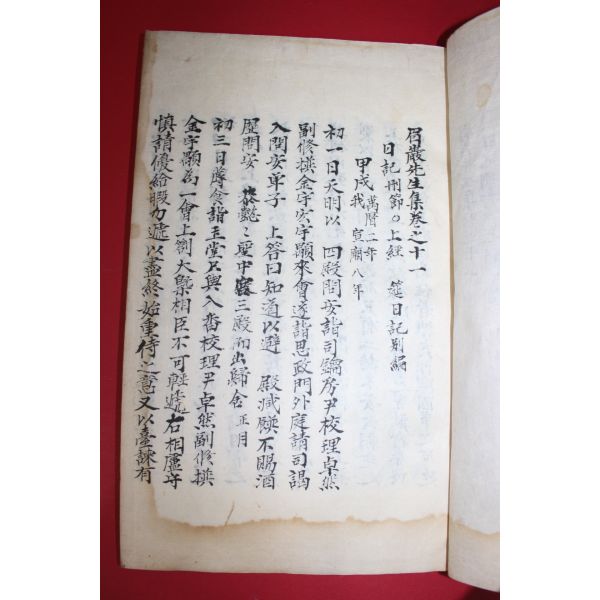 眉巖先生集卷之十一
日記刪節○上經筵日記別編
甲戌萬曆二年我宣廟八年
初一日天明以 四殿問安詣司鑰房尹校理卓然
副修撰金宇宏宇顒來會遂詣思政門外庭請司謁
入問安單子 上答曰知道以避 殿減膳不賜酒
歷問安 恭懿 聖中宮三殿而出歸舍正月
初三日蓐食詣玉堂只與入番校理尹卓然副修撰
金宇顒爲一會上劄大槩相臣不可輕遞右相盧守
愼請優給暇力遞以盡終始重待之寵又以臺諫有